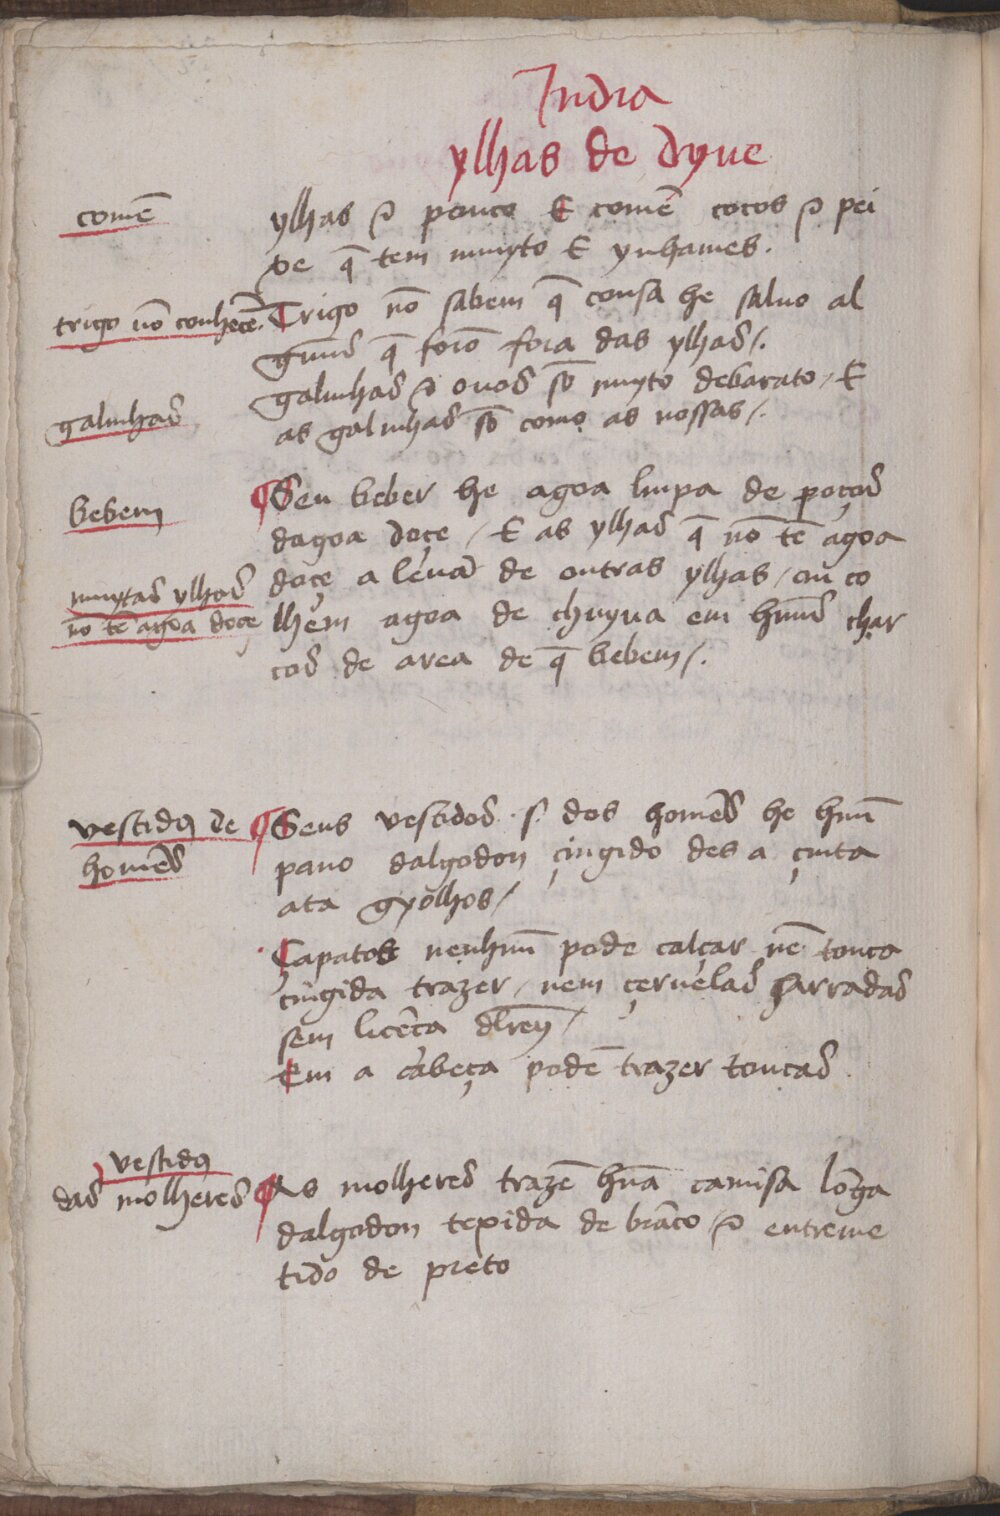 India
ylhas de dyue
comē
ylhas ⁊ pouco E comē cocos ⁊ pei
xe q̄ tem muyto E ynhames.
trigo nō conhecē.
Trigo nō sabem q̄ cousa he saluo al
guūs q̄ forō fora das ylhas/.
galinhas
galinhas ⁊ ouos sō muyto debarato / E
as galinhas sō como as nossas/.
bebem
¶Seu beber he agoa limpa de poços
dagoa doçe / E as ylhas q̄ nō tē agoa
muytas ylhas
doçe a leuā de outras ylhas / ou co
nō tē agoa doçe
lhem agoa de chuyua em huūs char
cos de area de q̄ bebem/.
vestidos de
homēs
¶Seus vestidos .s. dos homēs he huū
pano dalgodon çingido des a çinta
ata gyolhos/
Çapatos nenhuū pode calçar nē touca
çingida trazer / nem çeruelas farradas
sem licēça dlrey/
Em a cabeça podē trazer toucas
vestidos
das molheres
¶As molheres trazē huā camisa lōga
dalgodon texida de brāco / ⁊ entreme
tido de preto